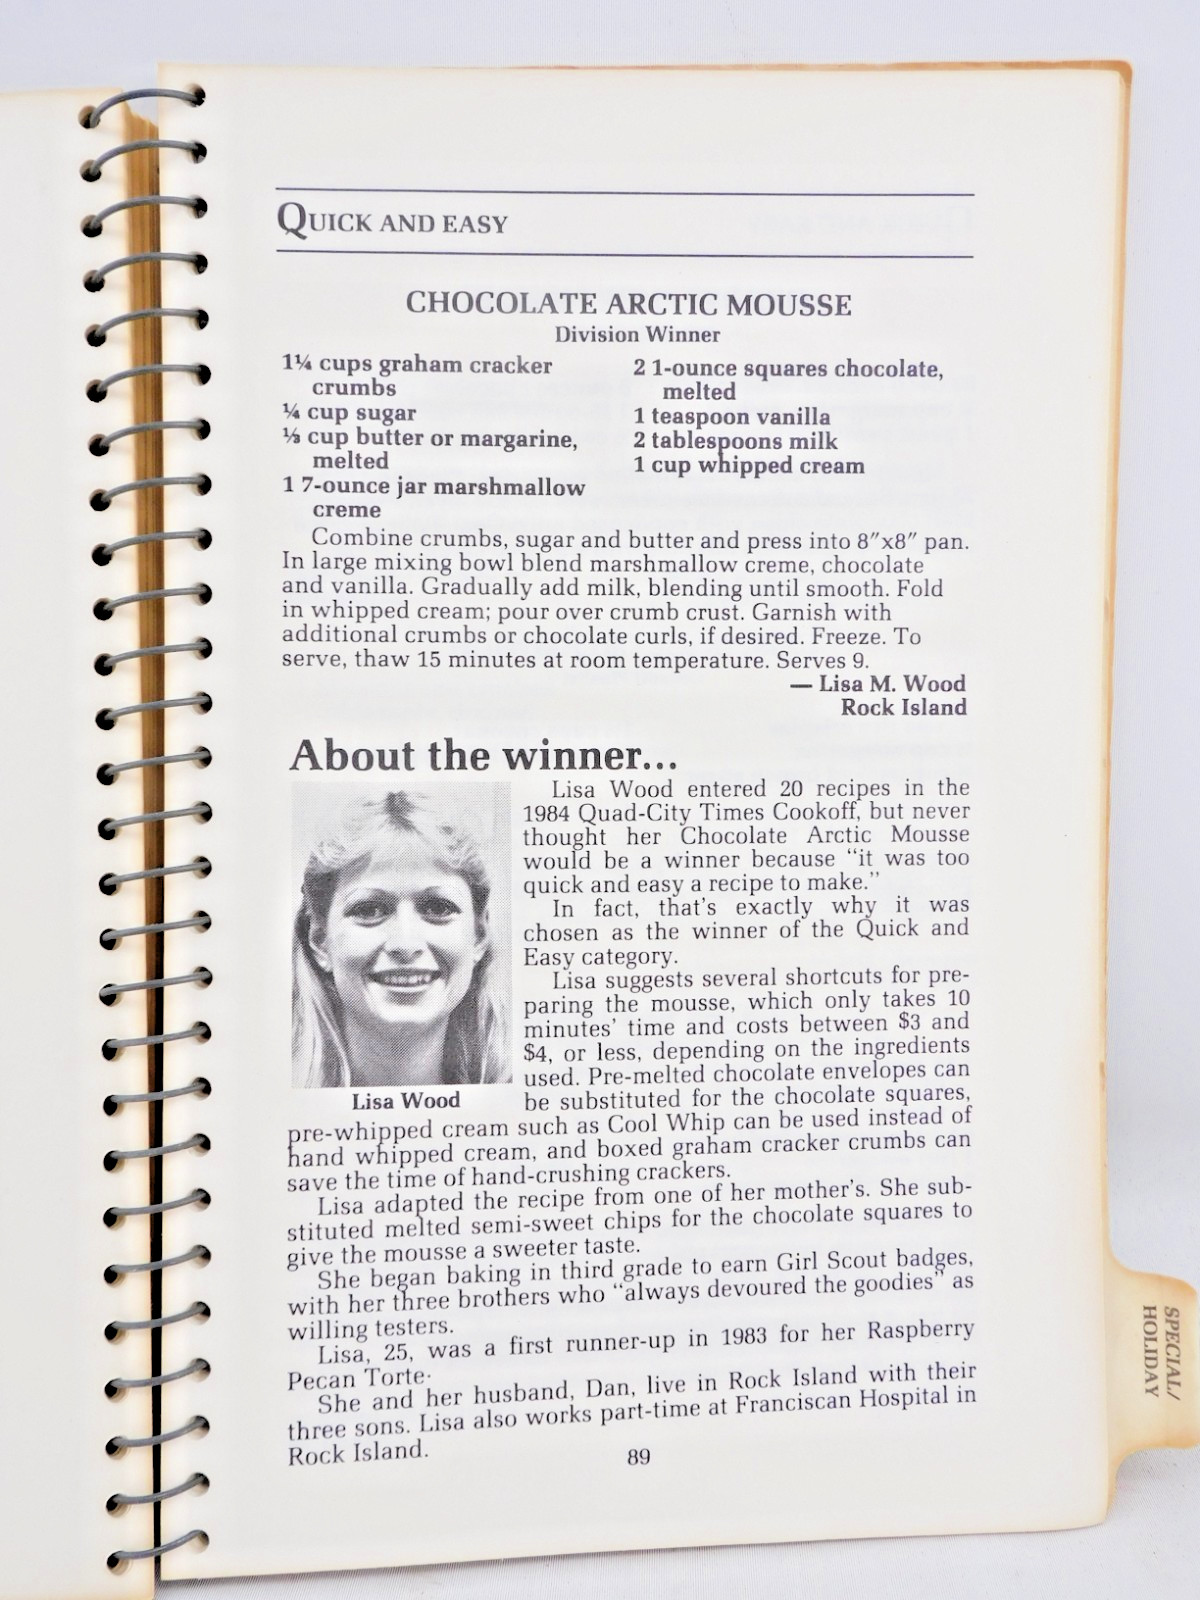 QUICK AND EASY
CHOCOLATE ARCTIC MOUSSE
Division Winner
1¼ cups graham cracker
crumbs
¼ cup sugar
⅓ cup butter or margarine,
melted
1 7-ounce jar marshmallow
creme
2 1-ounce squares chocolate,
melted
1 teaspoon vanilla
2 tablespoons milk
1 cup whipped cream
Combine crumbs, sugar and butter and press into 8″x8″ pan.
In large mixing bowl blend marshmallow creme, chocolate
and vanilla. Gradually add milk, blending until smooth. Fold
in whipped cream; pour over crumb crust. Garnish with
additional crumbs or chocolate curls, if desired. Freeze. To
serve, thaw 15 minutes at room temperature. Serves 9.
— Lisa M. Wood
Rock Island
About the winner...
Lisa Wood entered 20 recipes in the
1984 Quad-City Times Cookoff, but never
thought her Chocolate Arctic Mousse
would be a winner because “it was too
quick and easy a recipe to make.”
In fact, that's exactly why it was
chosen as the winner of the Quick and
Easy category.
Lisa suggests several shortcuts for pre-
paring the mousse, which only takes 10
minutes' time and costs between $3 and
$4, or less, depending on the ingredients
used. Pre-melted chocolate envelopes can
be substituted for the chocolate squares,
Lisa Wood
pre-whipped cream such as Cool Whip can be used instead of
hand whipped cream, and boxed graham cracker crumbs can
save the time of hand-crushing crackers.
Lisa adapted the recipe from one of her mother's. She sub-
stituted melted semi-sweet chips for the chocolate squares to
give the mousse a sweeter taste.
She began baking in third grade to earn Girl Scout badges,
with her three brothers who “always devoured the goodies” as
willing testers.
Lisa, 25, was a first runner-up in 1983 for her Raspberry
Pecan Torte.
She and her husband, Dan, live in Rock Island with their
three sons. Lisa also works part-time at Franciscan Hospital in
Rock Island.
89
SPECIAL/
HOLIDAY